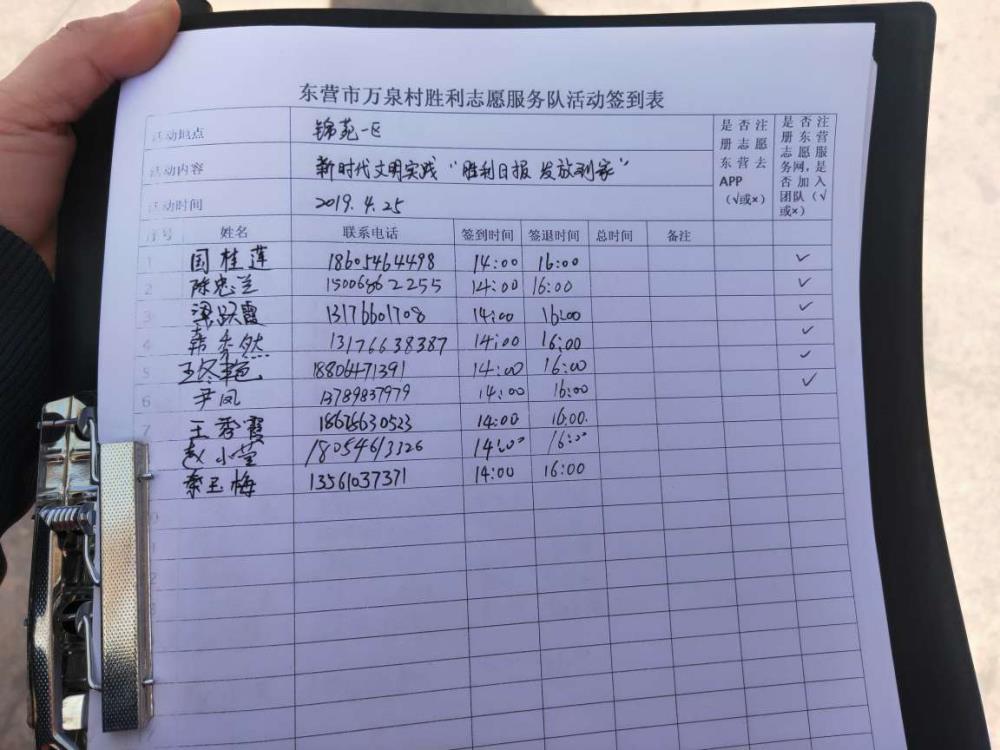 东营市万泉村胜利志愿服务队活动签到表
活动地点 锦苑一区
活动内容 新时代文明实践“胜利日报 发放到家”
活动时间 2019.4.25
是否注册志愿东营去APP（√或×）
是否注册东营志愿服务网，是否加入团队（√或×）
序号 姓名 联系电话 签到时间 签退时间 总时间 备注
1 国桂莲 18605464498 14:00 16:00 ✓
2 陈忠兰 15006862255 14:00 16:00 ✓
3 梁跃霞 13176601708 14:00 16:00 ✓
4 韩秀然 13176638387 14:00 16:00 ✓
5 王冬艳 18806471391 14:00 16:00 ✓
6 尹凤 13789837979 14:00 16:00 ✓
7 王秀霞 18678630523 14:00 16:00
赵小莹 18054613326 14:00 16:00
秦玉梅 13561037371 14:00 16:00